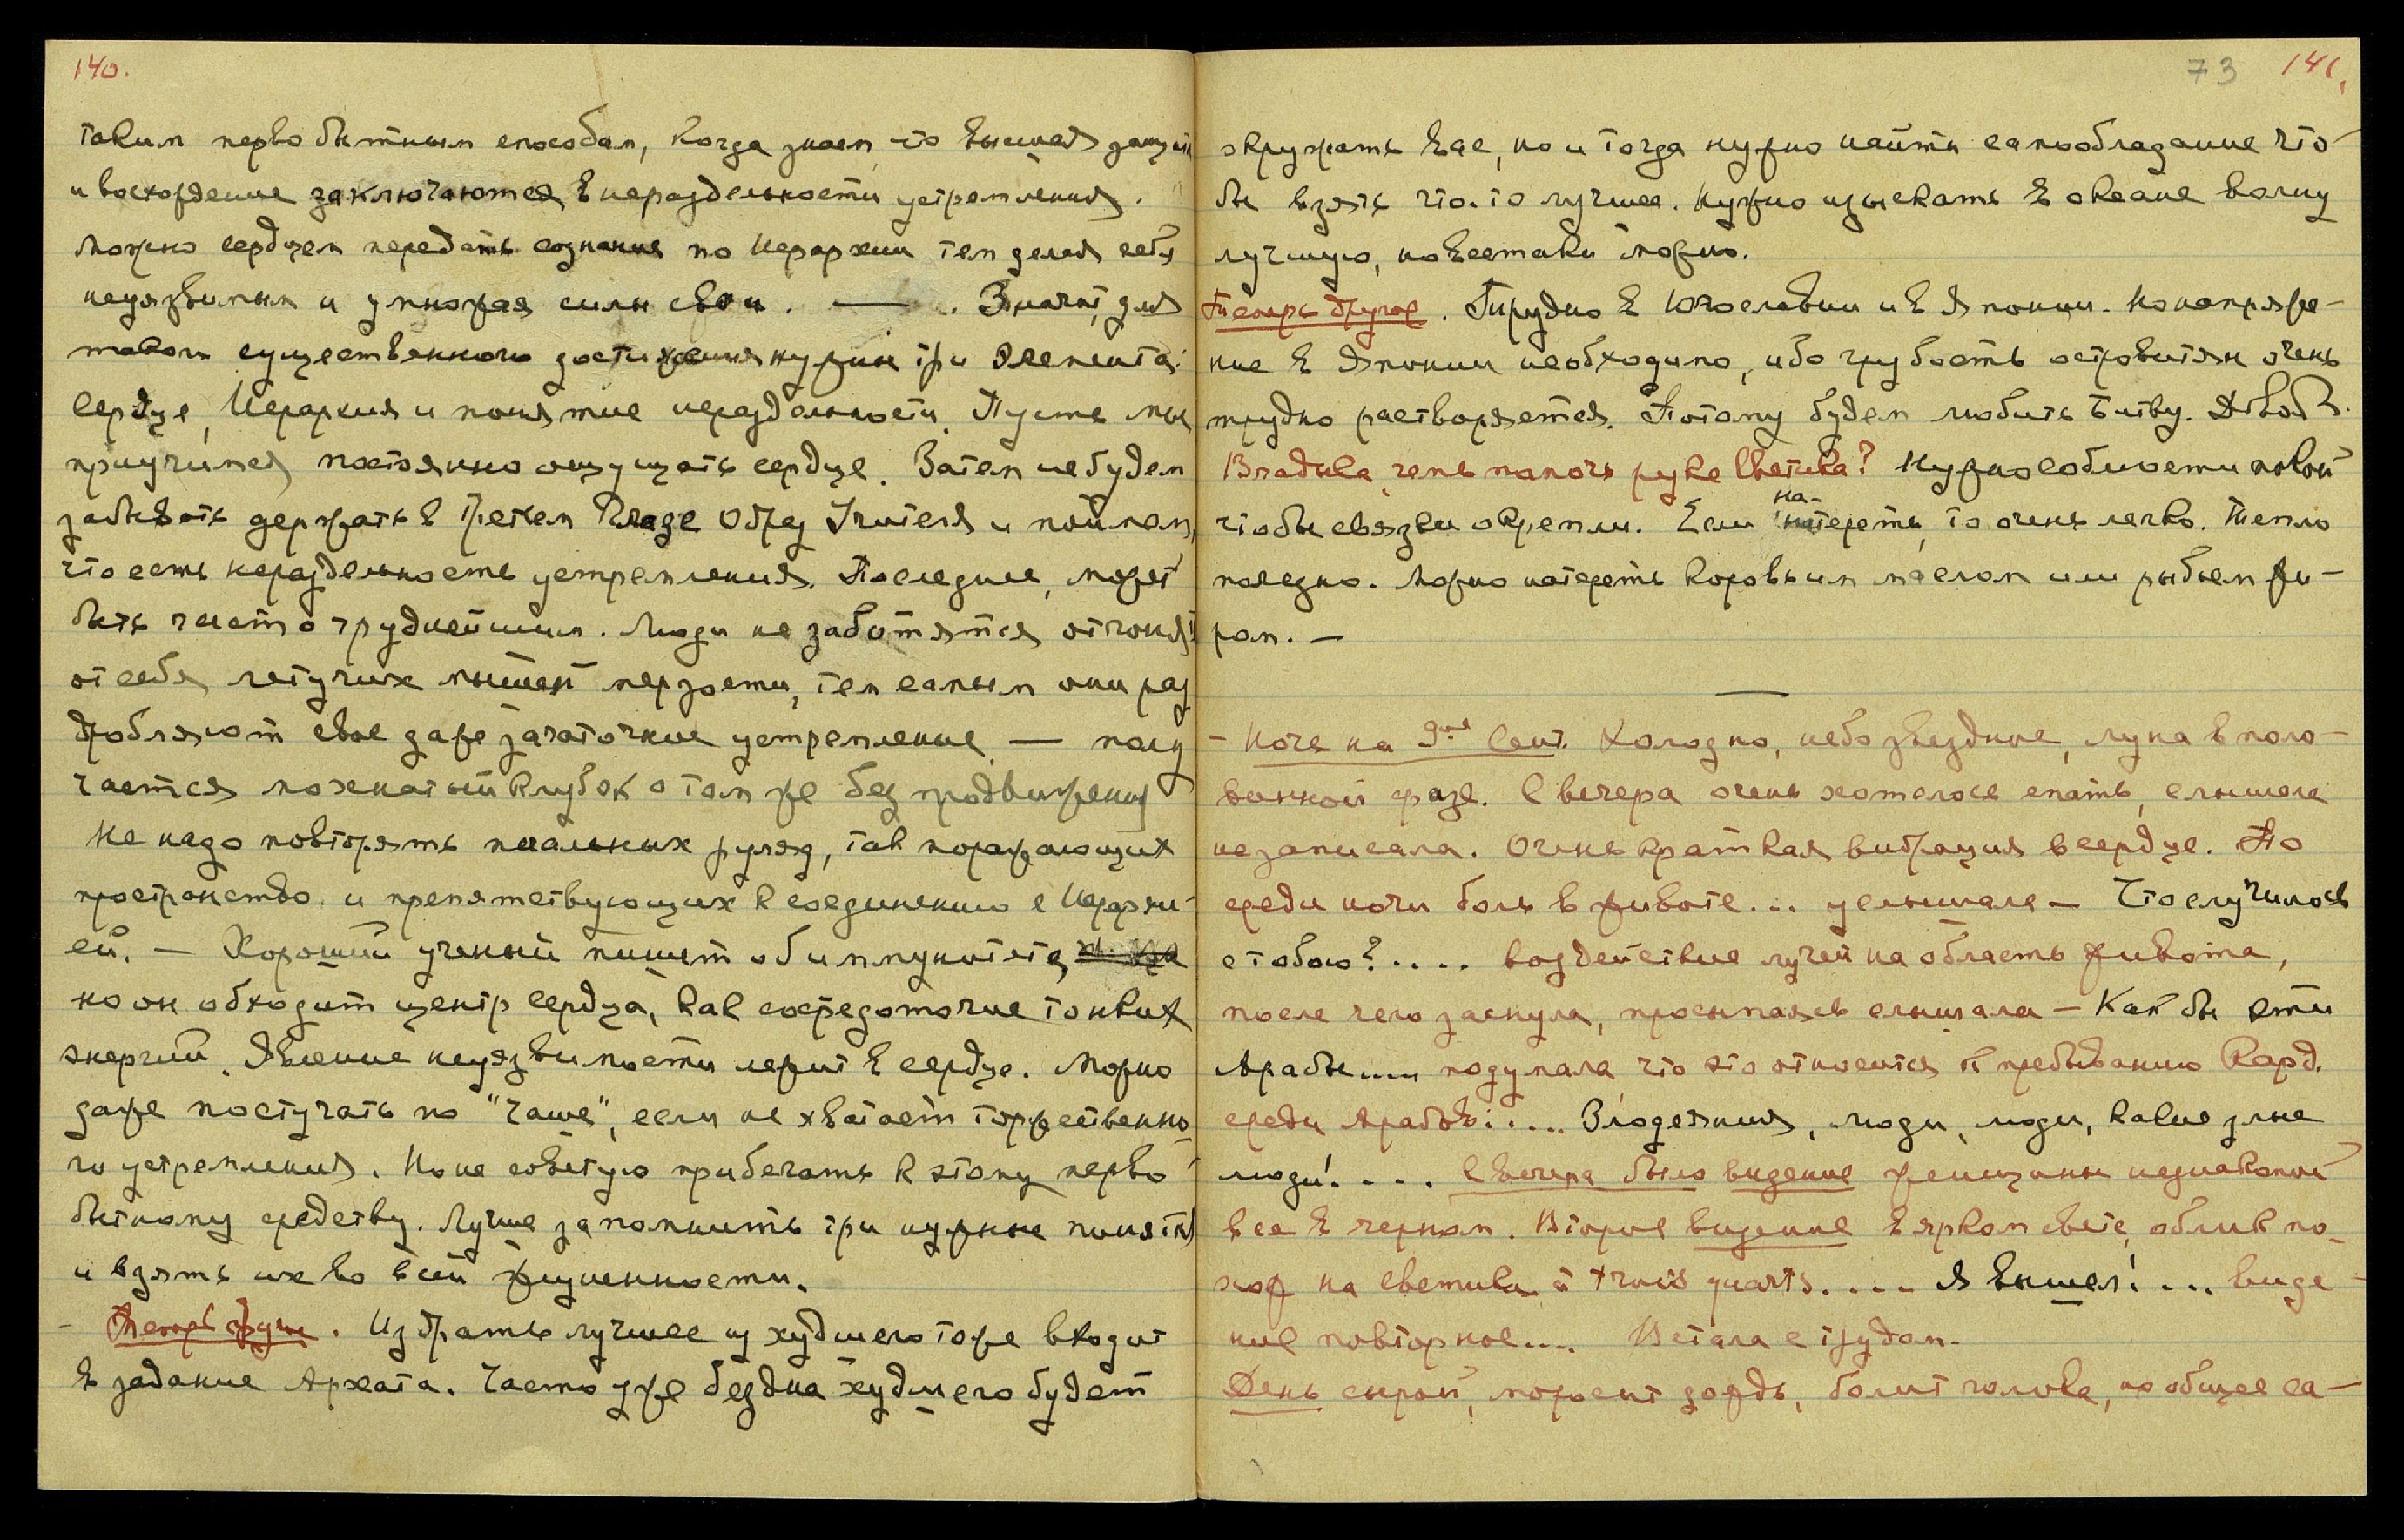 140.
таким перво бытным способом, когда знаем, что высшая защита
и восхождение заключаются в нераздельности устремления."
Можно сердцем передать сознание по Иерархии тем делая себя
неуязвимым и умножая силы свои. — . Значит, для
такого существенного достижения нужны три элемента:
Сердце, Иерархия и понятие нераздельности. Пусть мы
приучимся постоянно ощущать сердце. Затем не будем
забывать держать в третьем глазе Образ Учителя и поймем,
что есть нераздельность устремления. Последнее, может
быть часто труднейшим. Люди не заботятся отгонять
от себя летучих мышей мерзости, тем самым они раз
дробляют свое даже зачаточное устремление — полу
чается лохматый клубок о том же без продвижения
Не надо повторять печальных рулад, так поражающих
пространство и препятствующих к соединению с Иерархи-
ей. — Хороший ученый пишет об иммунитете,
но он обходит центр сердца, как сосредоточие тонких
энергий. Явление неуязвимости лежит в сердце. Можно
даже постучать по "чаше", если не хватает торжественно
го устремления. Но не советую прибегать к этому перво
бытному средству. Лучше запомнить три нужные понятия
и взять их во всей жизненности.
- Теперь другое. Избрать лучшее из худшего тоже входит
в задание Архата. Часто уже бездна худшего будет
73 141.
окружать вас, но и тогда нужно найти самообладание что-
бы взять что-то лучшее. Нужно изыскать в океане волну
лучшую, но всетаки можно.
Теперь другое. Трудно в Югославии и в Японии. Но напряже-
ние в Японии необходимо, ибо грубость островитян очень
трудно растворяется. Потому будем любить Битву. Довол.
Владыка, чем помочь руке Светика? Нужно соблюсти покой
чтобы связки окрепли. Если на-тереть, то очень легко. Тепло
полезно. Можно натереть коровьим маслом или рыбьем жи-
ром. —
—
- Ночь на 9ое Сент. Холодно, небо звездное, луна в поло-
винной фазе. С вечера очень хотелось спать, слышала
не записала. Очень краткая вибрация в сердце. По
среди ночи боль в животе... услышала — Что случилось
с тобою?.... воздействие лучей на область живота,
после чего заснула, просыпаясь слышала — Как бы эти
Арабы.... подумала что это относится к пребыванию Кард.
среди Арабов..... Злодеяния, люди, люди, какие злые
люди!.... С вечера было видение женщины незнакомой
все в черном. Второе видение в ярком свете, облик по-
хож на Светика à trois quarts.... Я вышел!... виде-
ние повторное.... Встала с трудом.
День сырой, моросит дождь, болит голова, но общее са-